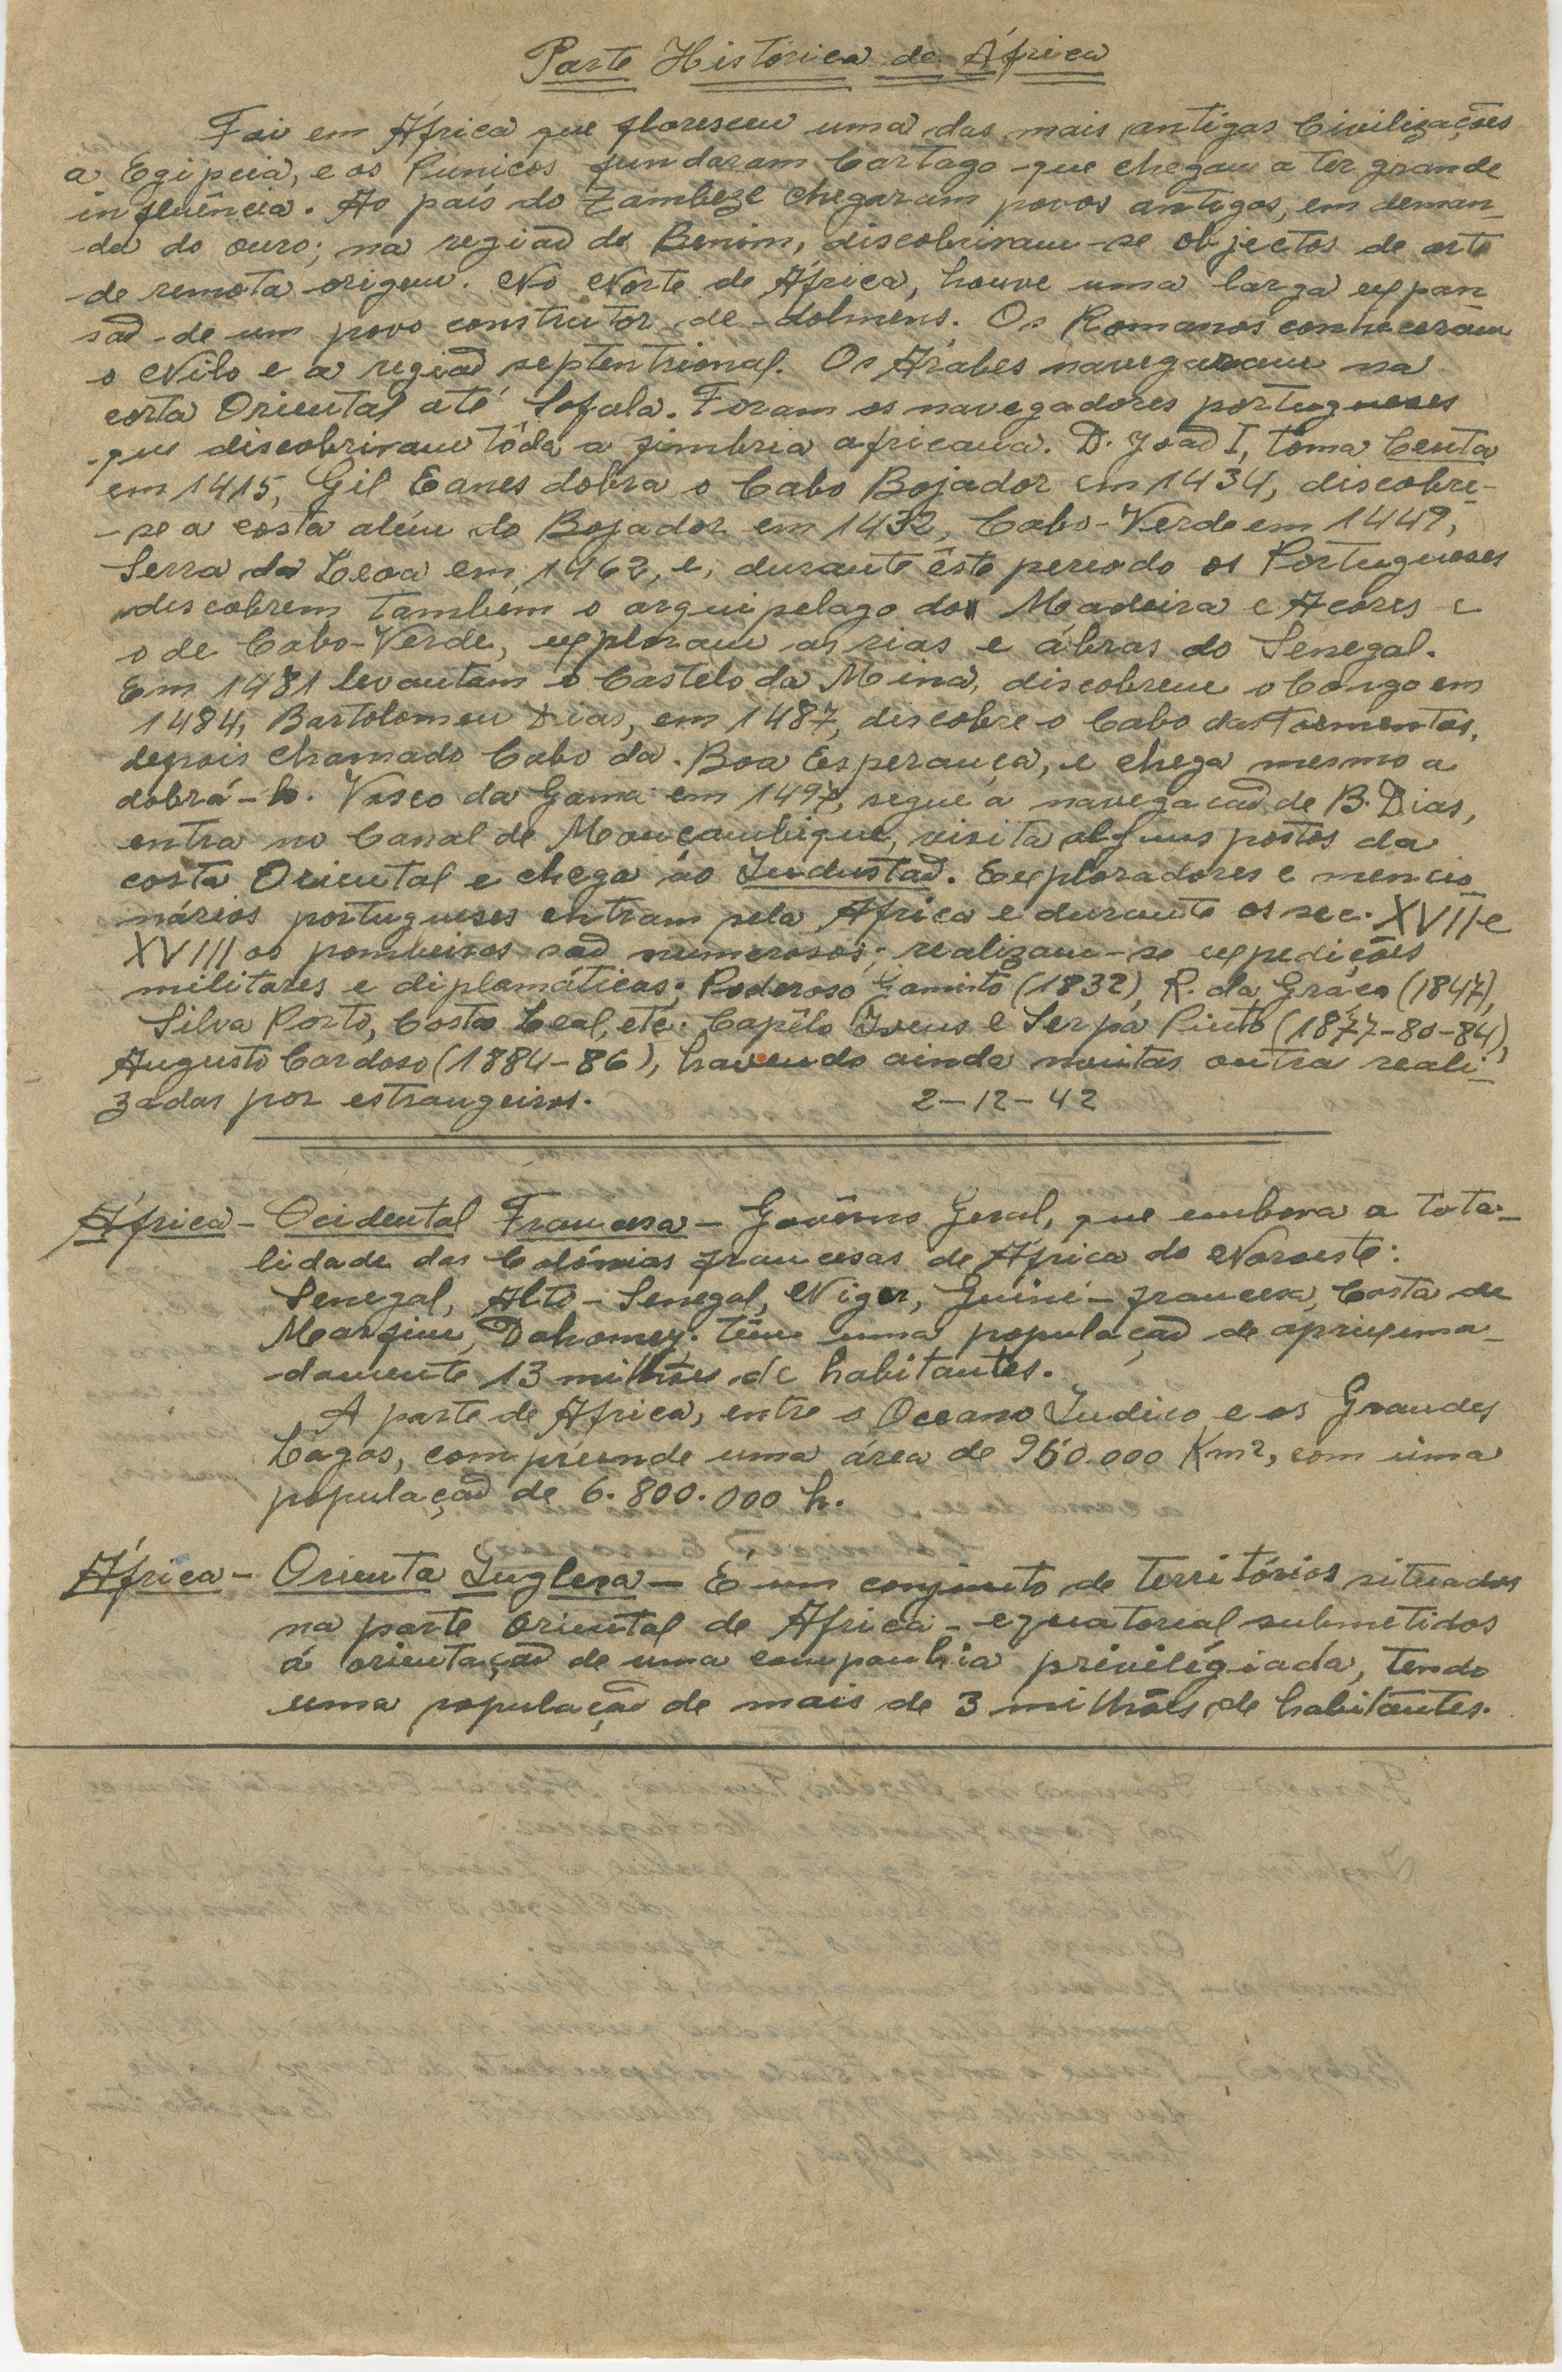 Parte Histórica de África
Foi em África que floresceu uma das mais antigas Civilizações
a Egipcia, e os Punicos fundaram Cartago que chegou a ter grande
influência. Ao país do Zambeze chegaram povos antigos, em deman-
da do ouro; na região de Benim, discobriram-se objectos de arte
de remota origem. No Norte de África, houve uma larga expan
são de um povo construtor de dolmens. Os Romanos conheceram
o Nilo e a região septentrional. Os Árabes navegavam na
costa Oriental até Sofala. Foram os navegadores portugueses
que discobriram tôda a fimbria africana. D. João I, toma Ceuta
em 1415, Gil Eanes dobra o Cabo Bojador em 1434, discobre-
-se a costa além do Bojador em 1432, Cabo-Verde em 1449,
Serra da Leoa em 1462, e, durante êste periodo os Portugueses
discobrem também o arquipelago da Madeira e Acores e
o de Cabo-Verde, exploram as rias e ábras do Senegal.
Em 1481 levantam o Castelo da Mina, discobrem o Congo em
1484, Bartolomeu Dias, em 1487, discobre o Cabo das Tormentas,
depois chamado Cabo da Boa Esperança, e chega mesmo a
dobrá-lo. Vasco da Gama em 1497, segue a navegacão de B. Dias,
entra no Canal de Moucambique, visita alguns postos da
costa Oriental e chega ao Industão. Exploradores e mencio
nários portugueses entram pela Africa e durante os sec. XVII e
XVIII os pombeiros são numerosos; realizam-se expedições
militares e diplomáticas; Poderoso Gamito (1832), R. da Graça (1847),
Silva Porto, Costa Leal, etc. Capêlo Ivens e Serpa Pinto (1877-80-84),
Augusto Cardoso (1884-86), havendo ainda muitas outra reali-
zadas por estrangeiros. 2-12-42
África - Ocidental Francesa - Govêrno Geral, que embora a tota-
lidade das Colónias francesas de África do Noroeste:
Senegal, Alto-Senegal, Niger, Guiné-francesa, Costa de
Marfim, Dahomey. Têm uma população de aproxima-
damente 13 milhões de habitantes.
A parte de Africa, entre o Oceano Indico e os Grandes
Lagos, compreende uma área de 960.000 Km², com uma
população de 6.800.000 h.
África - Orienta Inglesa - É um conjunto de territórios situados
na parte Oriental de Africa-equatorial submetidos
á orientação de uma companhia privilégiada, tendo
uma população de mais de 3 milhões de habitantes.